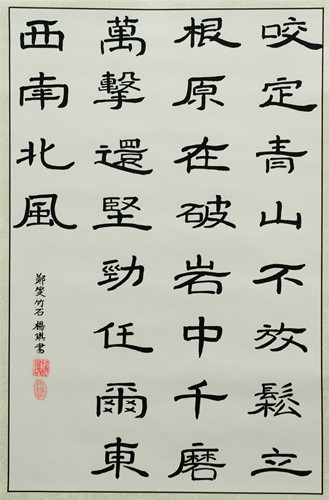 咬定青山不放鬆立
根原在破岩中千磨
萬擊還堅勁任爾東
西南北風
鄭燮竹石 楊琪書